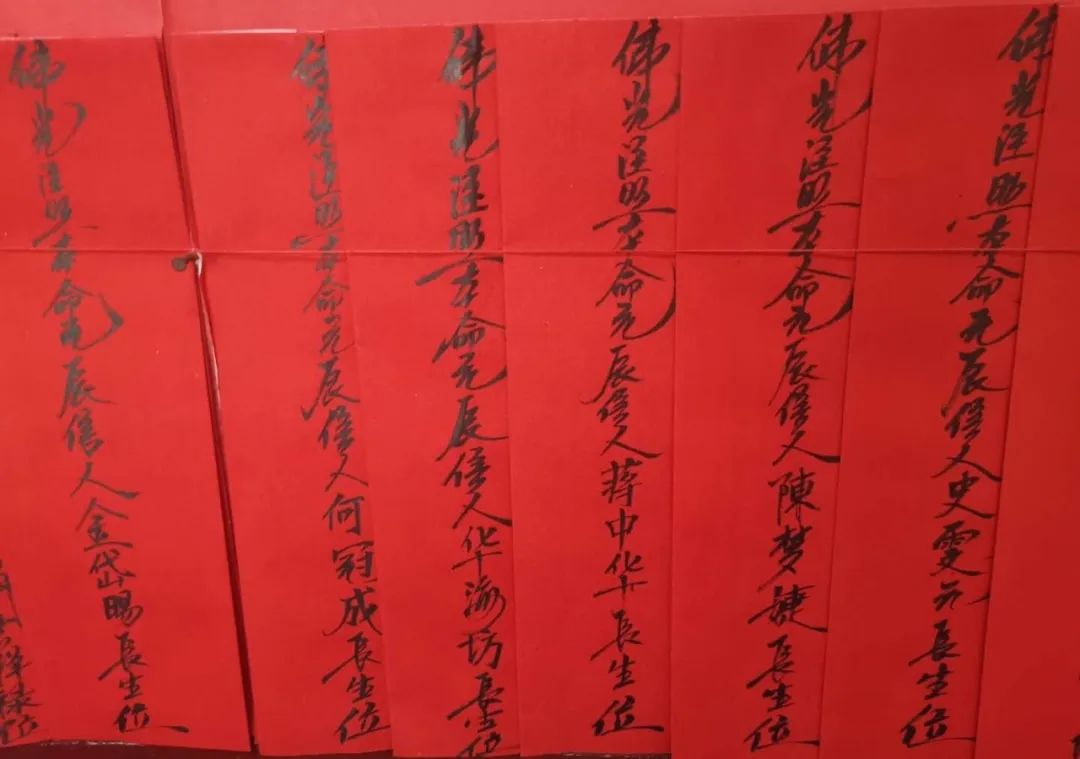 佛光注照本命元辰信人史雯元長生位
佛光注照本命元辰信人陳梦婕長生位
佛光注照本命元辰信人蒋中华長生位
佛光注照本命元辰信人华海坊長生位
佛光注照本命元辰信人何冠成長生位
佛光注照本命元辰信人金岱暘長生位
禄位